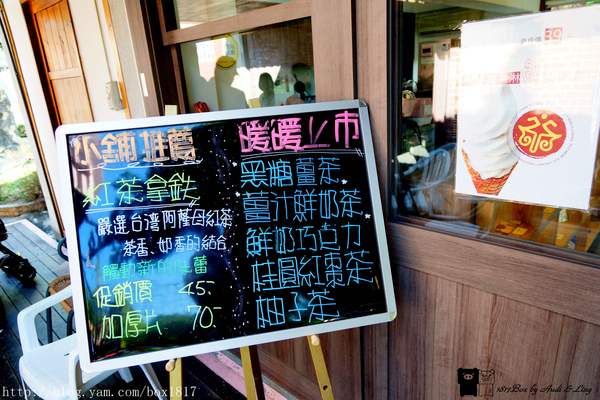 小舖推薦
紅茶拿鉄
嚴選台湾阿薩母紅茶
茶香、奶香的結合
觸動新的味蕾
促銷價 45.
加厚片 70.
暖暖上市
黑糖薑茶
薑汁鮮奶茶
鮮奶巧克力
桂圓紅棗茶
柚子茶
39
http://blog.yam.com/box1817
1817Box by Audi & Ling